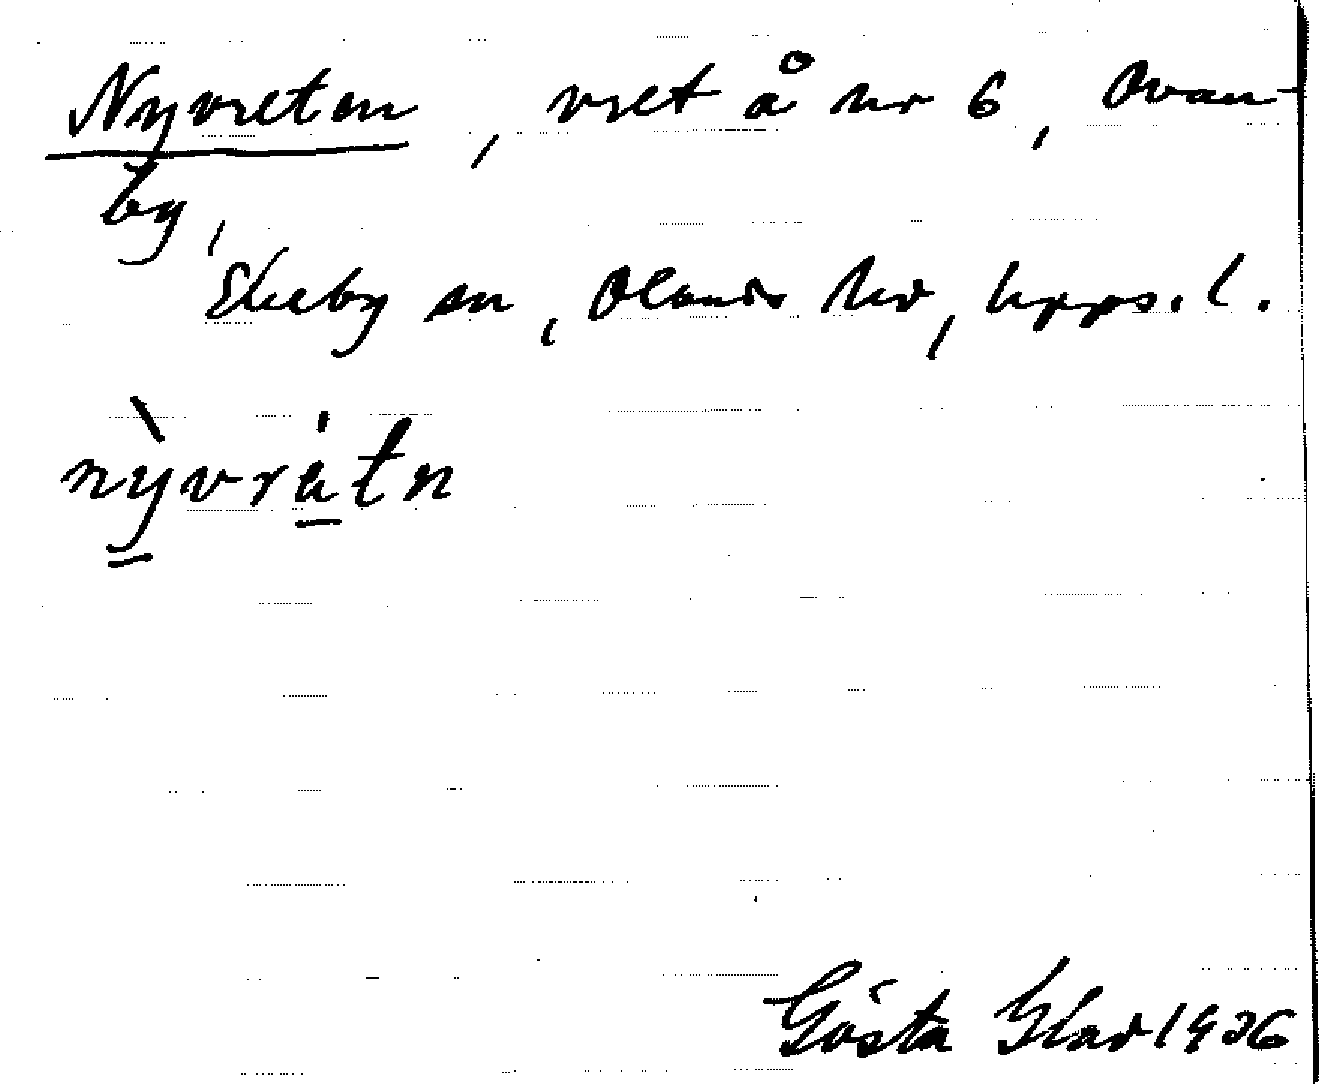 Nyvreten, vret å nr 6, Ovan-
by,
Ekeby sn, Olands hd, Upps. l.
nỳvràtn
Gösta Glad 1936